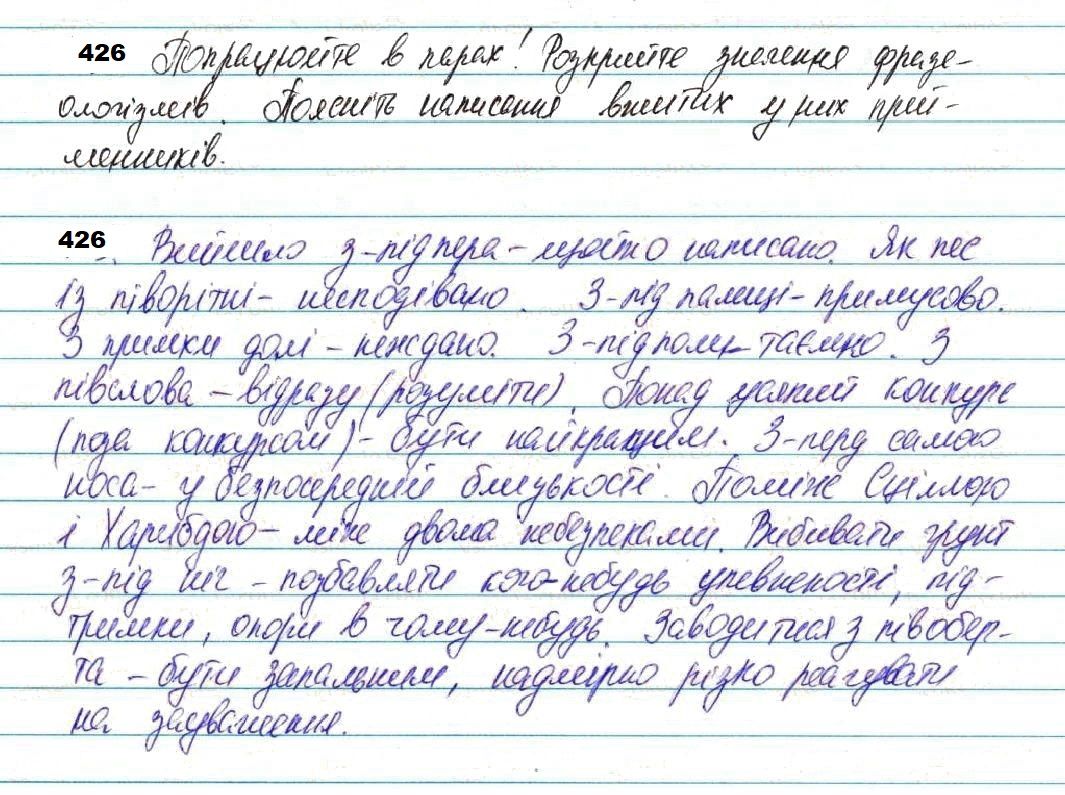 426 Попрацюйте в парах! Розкрийте значення фразе-
ологізмів. Поясніть написання вжитих у них прий-
менників.
426 Вийшло з-під пера - щойно написано. Як пес
із підворітні - несподівано. З-під палиці - примусово.
З примхи долі - неждано. З-під поли - таємно. З
півслова - відразу (розуміти). Понад усякий конкурс
(поза конкурсом) - бути найкращим. З-перд самого
носа - у безпосередній близькості. Поміж Сціллою
і Харибдою - між двома небезпеками. Вибивати грунт
з-під ніг - позбавляти кого-небудь упевненості, під-
тримки, опори в чому-небудь. Заводитися з півобер-
та - бути запальним, надмірно різко реагувати
на зауваження.